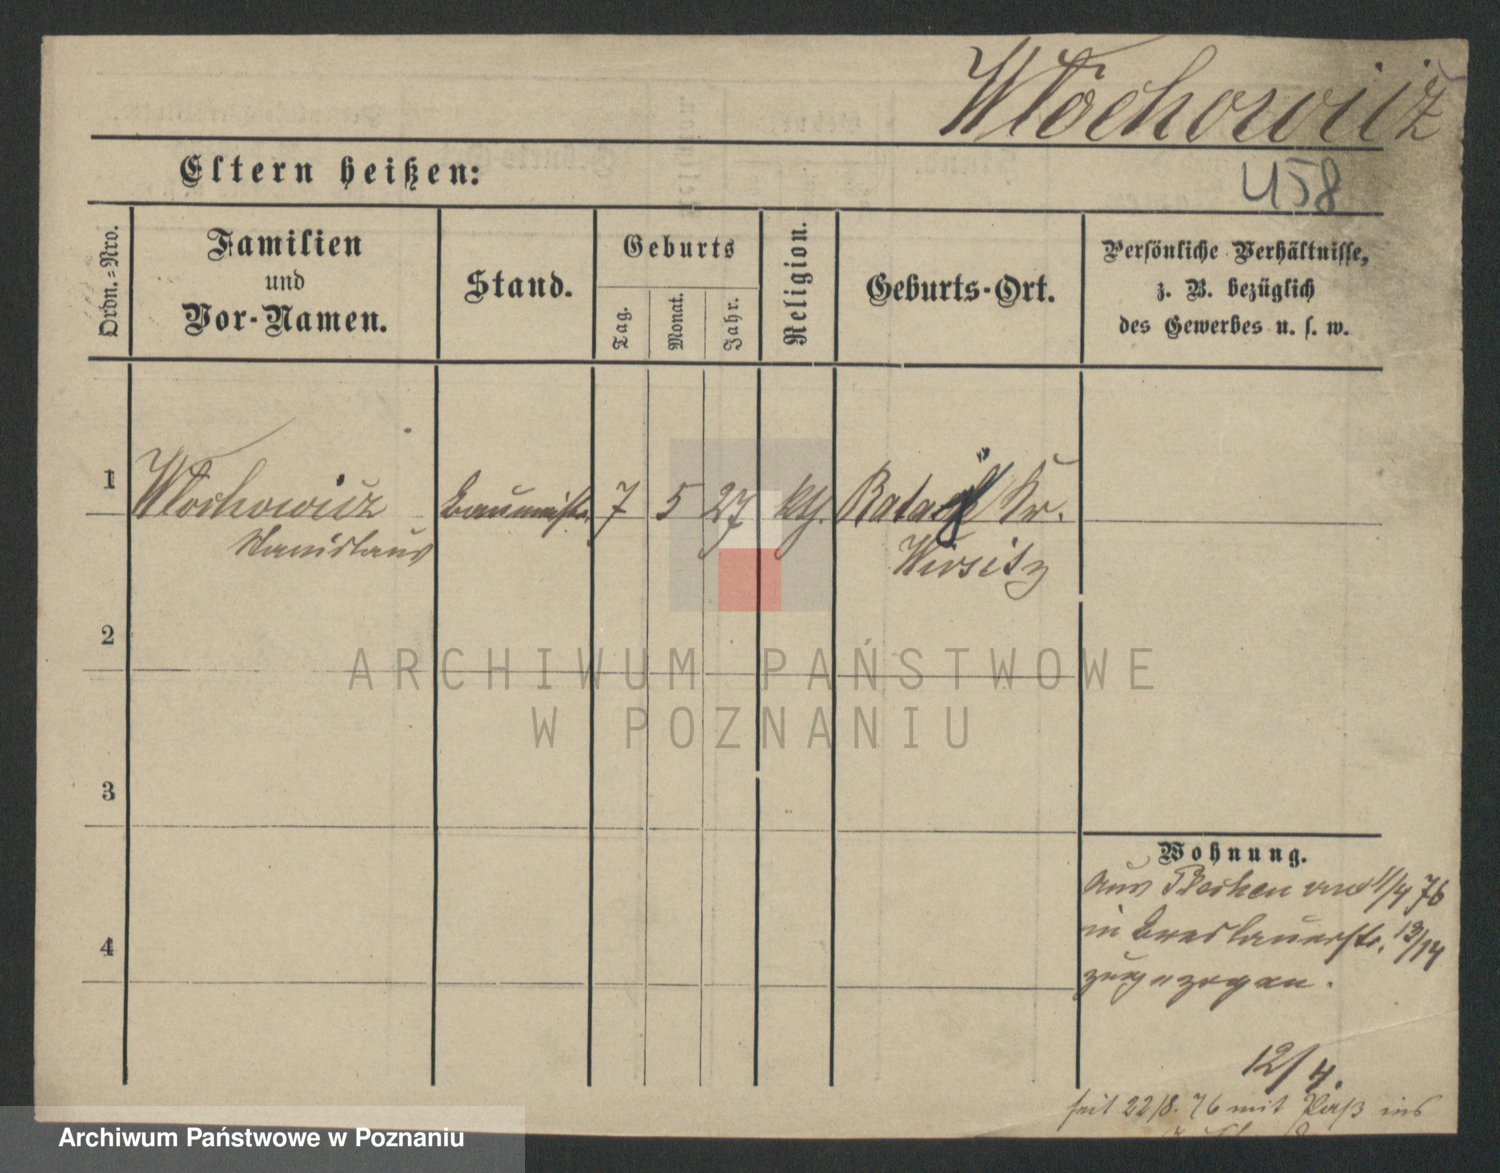 Włochowicz
Eltern heißen:
458
Ordn.=Nro.
Familien
und
Vor-Namen.
Stand.
Geburts
Tag.
Monat.
Jahr.
Religion.
Geburts-Ort.
Persönliche Verhältnisse,
z. B. bezüglich
des Gewerbes u. s. w.
1
Włochowicz
Stanislaus
Baumeister
7
5
27
kth.
Kr.
Wirsitz
2
ARCHIWUM PAŃSTWOWE
W POZNANIU
3
Wohnung.
Aus Pleschen 1/4 76
in Breslauerstr. 13/14
zugezogen.
4
12/4.
seit 22/8. 76 mit Paß ins
Archiwum Państwowe w Poznaniu